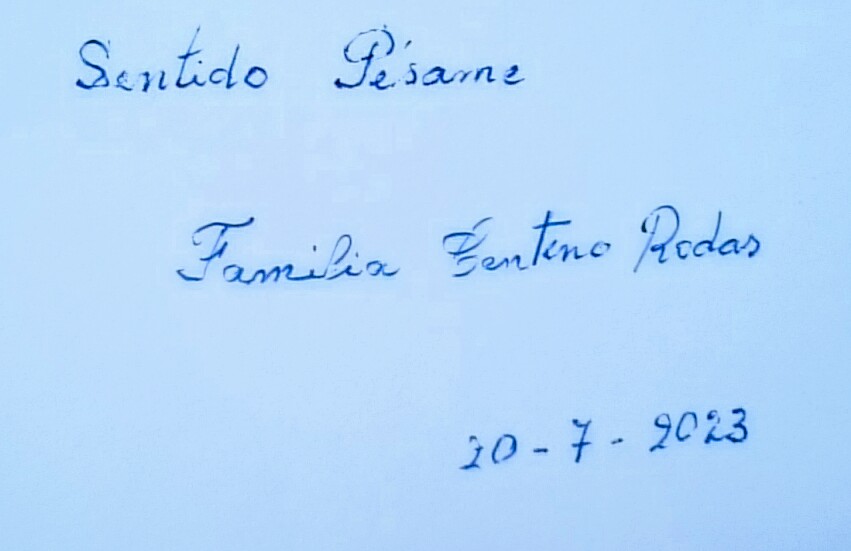 Sentido Pésame
Familia Zenteno Rodas
20-7-2023